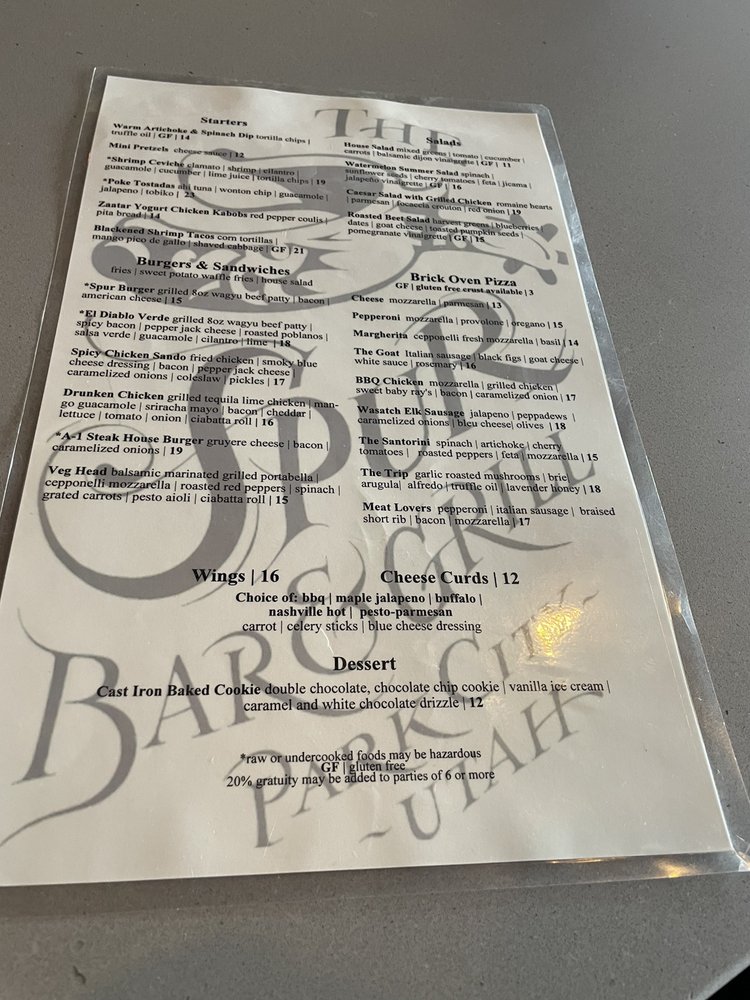 THE
SPUR
BAR & GRILL
PARK CITY
~UTAH~
Starters
Warm Artichoke & Spinach Dip tortilla chips |
truffle oil | GF | 14
Mini Pretzels cheese sauce | 12
*Shrimp Ceviche clamato | shrimp | cilantro |
guacamole | cucumber | lime juice | tortilla chips | 19
*Poke Tostadas ahi tuna | wonton chip | guacamole |
jalapeno | tobiko | 23
Zaatar Yogurt Chicken Kabobs red pepper coulis |
pita bread | 14
Blackened Shrimp Tacos corn tortillas |
mango pico de gallo | shaved cabbage | GF | 21
Burgers & Sandwiches
fries | sweet potato waffle fries | house salad
*Spur Burger grilled 8oz wagyu beef patty | bacon |
american cheese | 15
*El Diablo Verde grilled 8oz wagyu beef patty |
spicy bacon | pepper jack cheese | roasted poblanos |
salsa verde | guacamole | cilantro | lime | 18
Spicy Chicken Sando fried chicken | smoky blue
cheese dressing | bacon | pepper jack cheese |
caramelized onions | coleslaw | pickles | 17
Drunken Chicken grilled tequila lime chicken | man-
go guacamole | sriracha mayo | bacon | cheddar |
lettuce | tomato | onion | ciabatta roll | 16
*A-1 Steak House Burger gruyere cheese | bacon |
caramelized onions | 19
Veg Head balsamic marinated grilled portabella |
cepponelli mozzarella | roasted red peppers | spinach |
grated carrots | pesto aioli | ciabatta roll | 15
Salads
House Salad mixed greens | tomato | cucumber |
carrots | balsamic dijon vinaigrette | GF | 11
Watermelon Summer Salad spinach |
sunflower seeds | cherry tomatoes | feta | jicama |
jalapeño vinaigrette | GF | 16
Caesar Salad with Grilled Chicken romaine hearts
| parmesan | focaccia crouton | red onion | 19
Roasted Beet Salad harvest greens | blueberries |
dates | goat cheese | toasted pumpkin seeds |
pomegranate vinaigrette | GF | 15
Brick Oven Pizza
GF | gluten free crust available | 3
Cheese mozzarella | parmesan | 13
Pepperoni mozzarella | provolone | oregano | 15
Margherita cepponelli fresh mozzarella | basil | 14
The Goat Italian sausage | black figs | goat cheese |
white sauce | rosemary | 16
BBQ Chicken mozzarella | grilled chicken |
sweet baby ray's | bacon | caramelized onion | 17
Wasatch Elk Sausage jalapeno | peppadews |
caramelized onions | bleu cheese| olives | 18
The Santorini spinach | artichoke | cherry
tomatoes | roasted peppers | feta | mozzarella | 15
The Trip garlic roasted mushrooms | brie|
arugula| alfredo | truffle oil | lavender honey | 18
Meat Lovers pepperoni | italian sausage | braised
short rib | bacon | mozzarella | 17
Wings | 16
Cheese Curds | 12
Choice of: bbq | maple jalapeno | buffalo |
nashville hot | pesto-parmesan
carrot | celery sticks | blue cheese dressing
Dessert
Cast Iron Baked Cookie double chocolate, chocolate chip cookie | vanilla ice cream |
caramel and white chocolate drizzle | 12
*raw or undercooked foods may be hazardous
GF | gluten free
20% gratuity may be added to parties of 6 or more